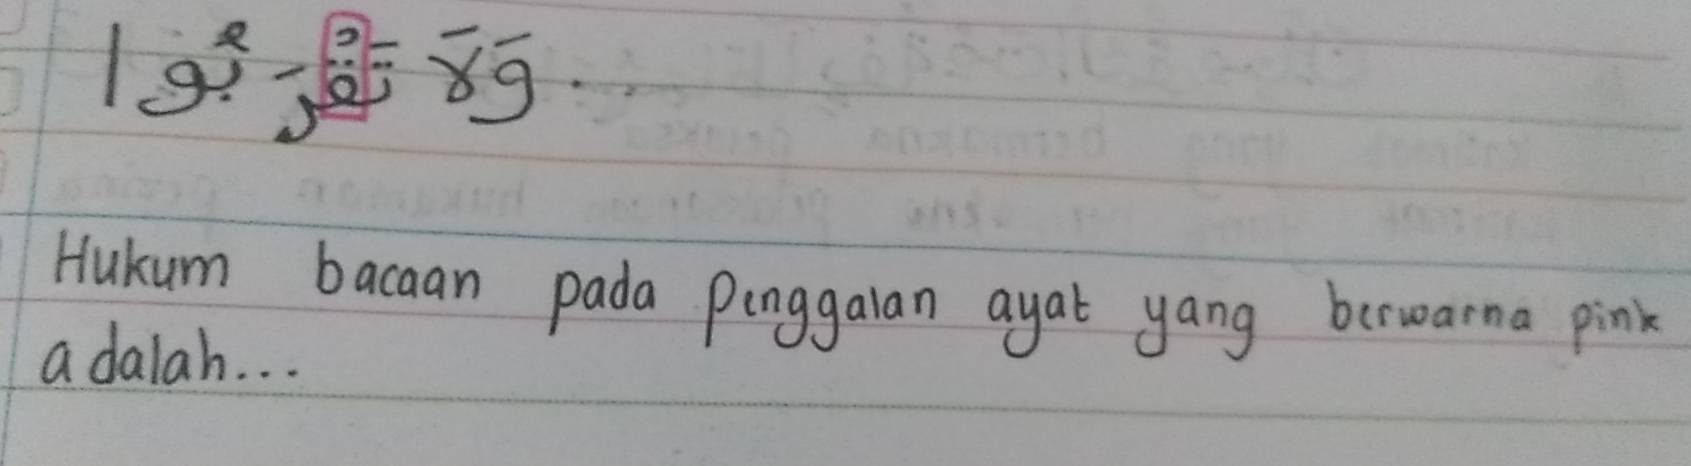 وَلَا تَقْرَبُوا
Hukum bacaan pada penggalan ayat yang berwarna pink
adalah...